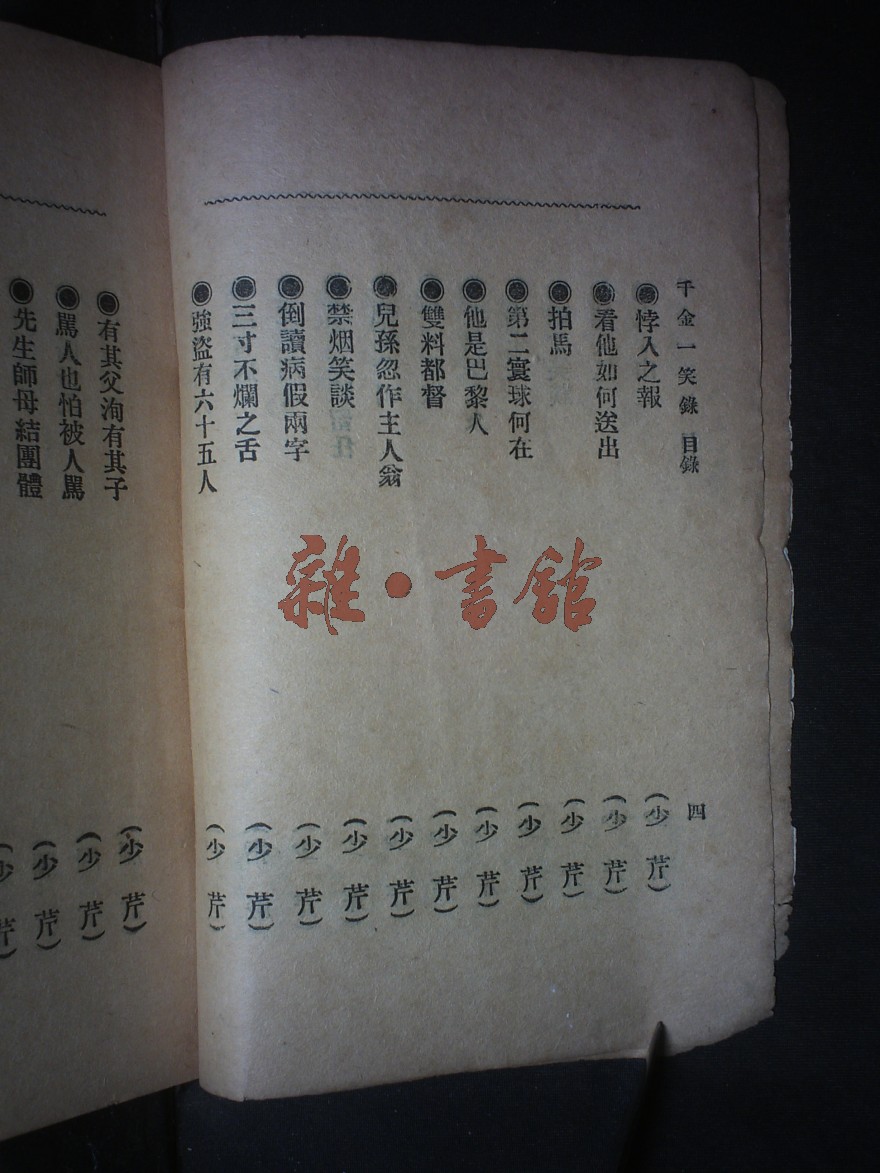 千金一笑錄 目錄 四
悖入之報 (少芹)
看他如何送出 (少芹)
拍馬 (少芹)
第二寰球何在 (少芹)
他是巴黎人 (少芹)
雙料都督 (少芹)
兒孫忽作主人翁 (少芹)
禁烟笑談 (少芹)
倒讀病假兩字 (少芹)
三寸不爛之舌 (少芹)
強盜有六十五人 (少芹)
有其父洵有其子 (少芹)
罵人也怕被人罵 (少芹)
先生師母結團體 (少芹)
少芹
雜·書館